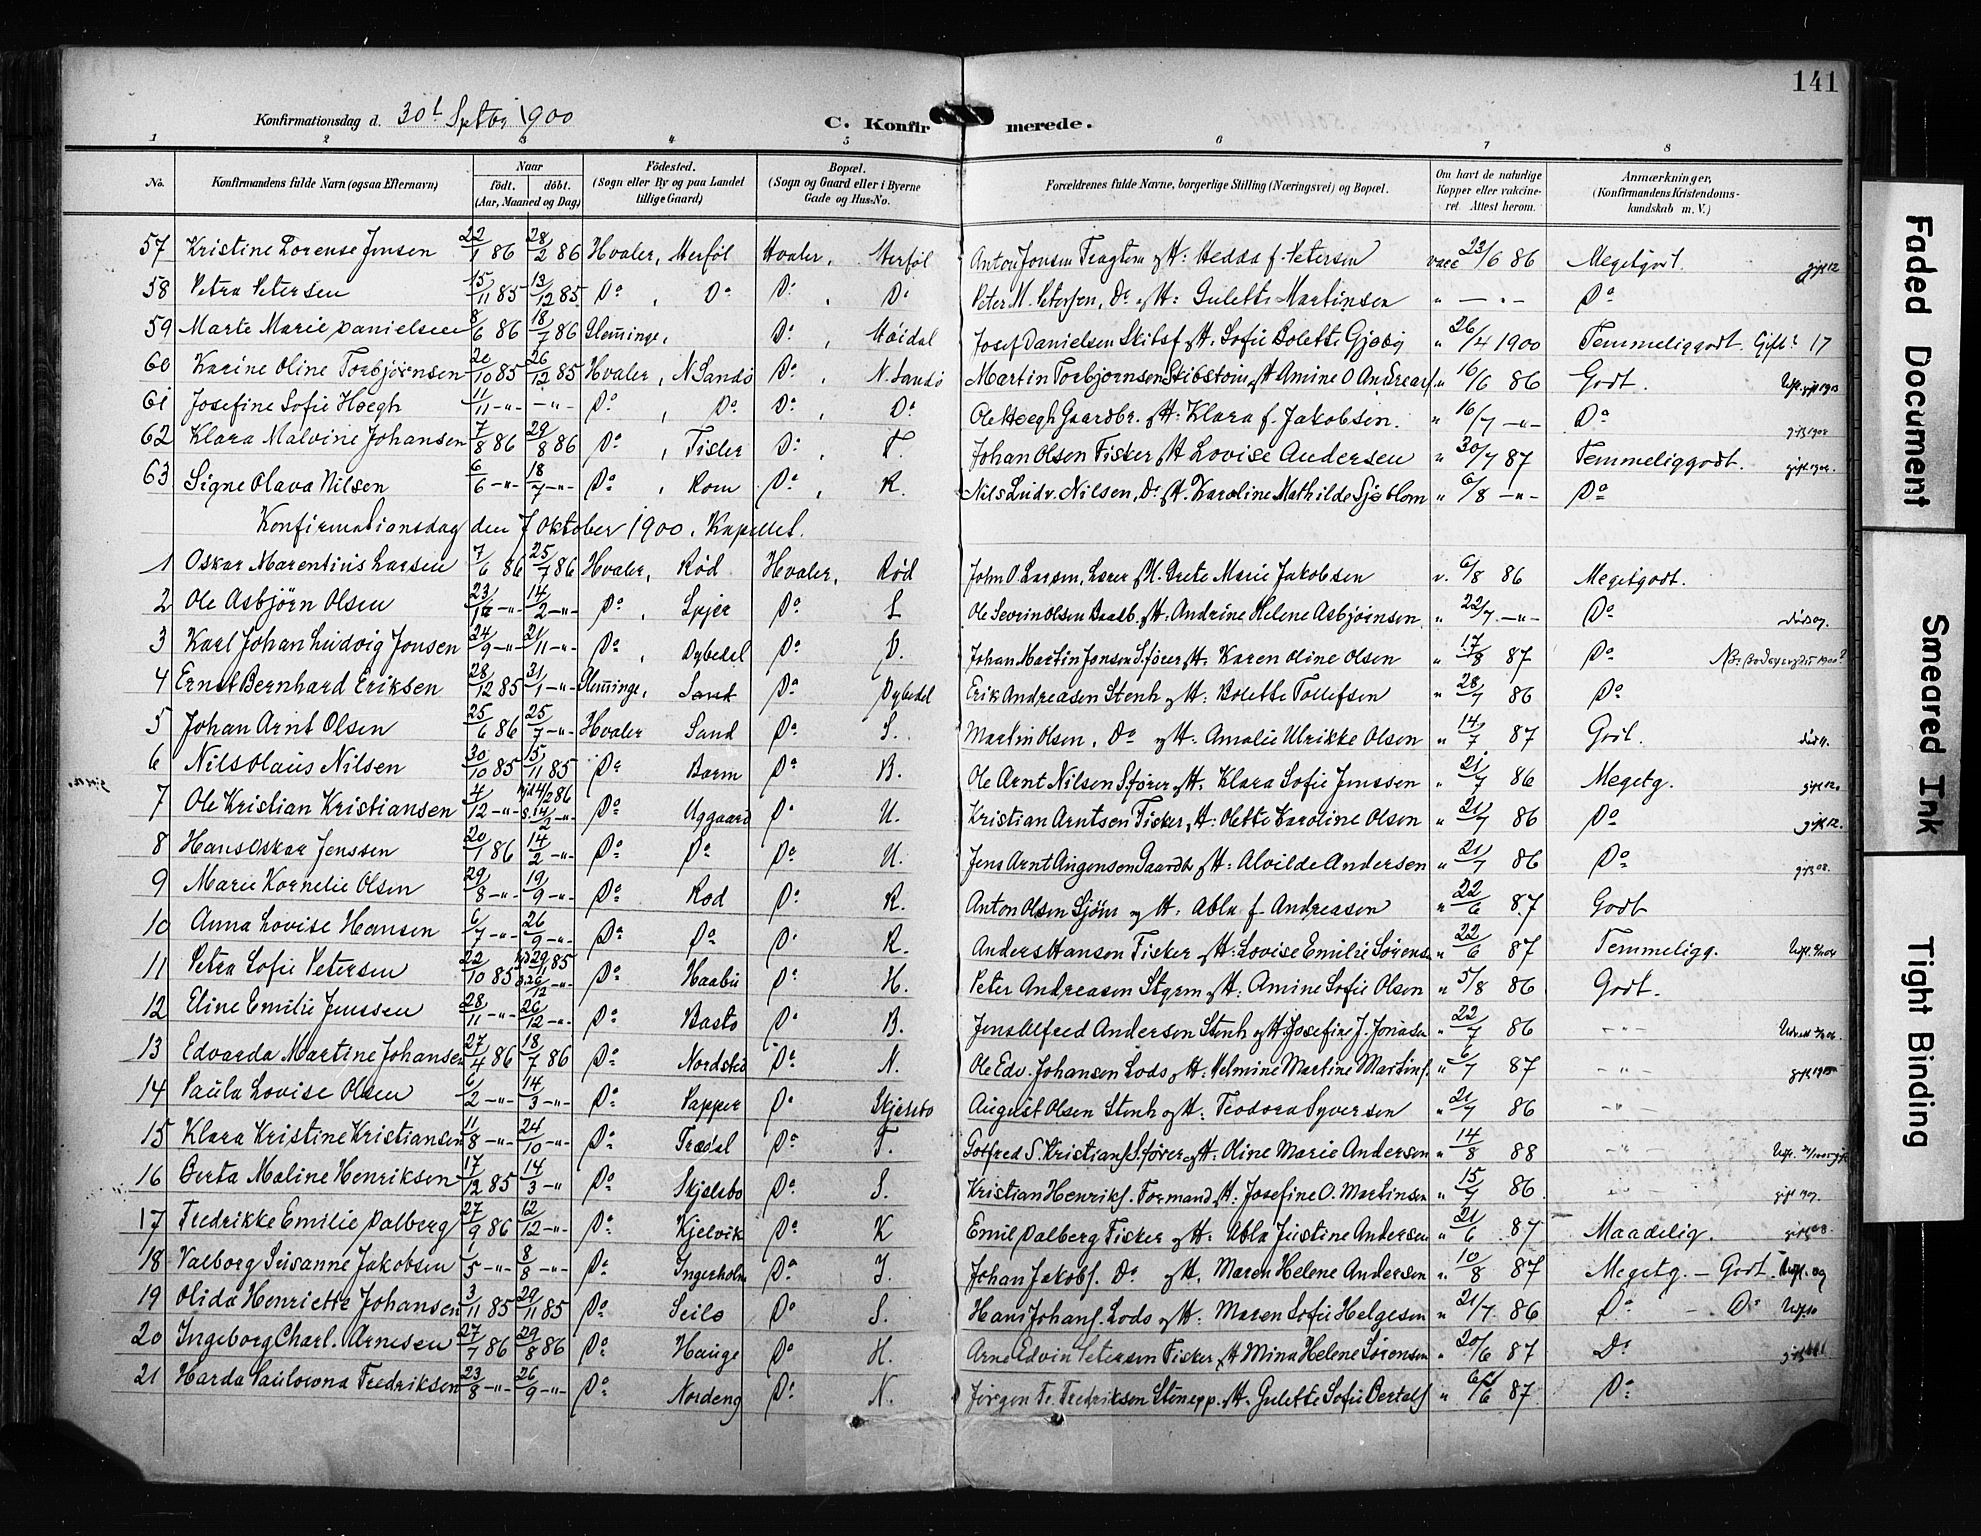 141
Konfirmationsdag d. 30t Septbr 1900
C. Konfirmerede.
1 2 3 4 5 6 7 8
No.
Konfirmandens fulde Navn (ogsaa Efternavn)
Naar
födt. döbt.
(Aar, Maaned og Dag)
Födested.
(Sogn eller By og paa Landet tillige Gaard)
Bopæl.
(Sogn og Gaard eller i Byerne Gade og Hus-No.
Forældrenes fulde Navne, borgerlige Stilling (Næringsvei) og Bopæl.
Om havt de naturlige Kopper eller vakcineret Attest herom.
Anmærkninger,
(Konfirmandens Kristendomskundskab m. V.)
57 Kristine Lorense Jensen 22/1 86 28/2 86 Hvaler, Herföl Hvaler, Herföl Anton Jensen Fragtem og H: Hedda f. Petersen vacc 23/6 86 Megetgodt. gift 12
58 Petra Petersen 15/11 85 13/12 85 Do , Do Do , Do Peter M. Petersen, Do og H: Gulette Martinsen " — " — Do
59 Marte Marie Danielsen 8/6 86 18/7 86 Glemminge, Do , Höidal Josef Danielsen Skibsf. og H. Sofie Bolette Gjeby " 26/4 1900 Temmeliggodt. Gift 17
60 Karine Oline Torbjörnsen 20/10 85 26/12 85 Hvaler, N Sandö Do , N. Sandö Martin Torbjornsen Skibstöm. og H Amine O Andreasf. " 16/6 86 Godt.
61 Josefine Sofie Høegh 11/11 -"- -"- Do , Do Do , Do Ole Høegh Gaardbr. og H: Klara f. Jakobsen. " 16/7 -"- Do
62 Klara Malvine Johansen 7/8 86 29/8 86 Do , Tisler Do , T. Johan Olsen Fisker og H Lovise Andersen " 30/7 87 Temmeliggodt. gift 1902
63 Signe Olava Nilsen 6/6 -"- 18/7 -"- Do , Rom Do , R. Nils Ludv. Nilsen, Do og H. Karoline Mathilde Sjøblom " 6/8 -"- Do
Konfirmationsdag den 7 Oktober 1900. Kapellet.
1 Oskar Marentius Larsen 7/6 86 25/7 86 Hvaler, Rød Hvaler, Rød John O. Larsen, Lærer og H. Grete Marie Jakobsen v. 6/8 86 Megetgodt.
2 Ole Asbjörn Olsen 23/1 -"- 14/2 -"- Do , Spjer Do S Ole Severin Olsen Baadb. og H. Andrine Helene Asbjörnsen " 22/7 -"- Do
3 Karl Johan Ludvig Jonsen 24/9 -"- 21/11 -"- Do , Dybedal Do D. Johan Martin Jonsen S.fører og H. Karen Oline Olsen " 17/8 87 Do
4 Ernst Bernhard Eriksen 28/12 85 31/1 -"- Glemminge, Sand Do Dybedal Erik Andreasen Stenh og H: Bolette Tollefsen " 28/7 86 Do
5 Johan Arnt Olsen 25/6 86 25/7 -"- Hvaler Sand Do S. Martin Olsen, Do og H: Amalie Ulrikke Olsen " 14/7 87 Godt.
6 Nils Olaus Nilsen 30/10 85 15/11 85 Do Barm Do B. Ole Arnt Nilsen S.fører og H. Klara Sofie Jenssen " 21/7 86 Megetg. gift 12.
7 Ole Kristian Kristiansen 4/12 -"- hjd 4/2 86 s. 14/2 -"- Do Uggaard Do U. Kristian Arntsen Fisker og H: Olette Karoline Olsen " 21/7 86 Do gift 12.
8 Hans Oskar Jenssen 20/1 86 14/2 -"- Do Do Do U. Jens Arnt Augensen Gaardb og H: Alvilde Andersen " 21/7 86 Do gift 08.
9 Marie Kornelie Olsen 29/8 -"- 19/9 -"- Do Rød Do R. Anton Olsen Sjöm og H: Abla f. Andreasen " 22/6 87 Godt
10 Anna Lovise Hansen 6/7 -"- 26/9 -"- Do Do Do R. Anders Hansen Fisker og H: Lovise Emilie Sörens. " 22/6 87 Temmeligg.
11 Petra Sofie Petersen 22/10 85 hjd 29/11 85 s. 26/12 -"- Do Haabu Do H. Peter Andreasen Styrm og H: Amine Sofie Olsen " 5/8 86 Godt.
12 Eline Emilie Jenssen 28/11 -"- 26/12 -"- Do Bastö Do B. Jens Alfred Andersen Stenh og H. Josefine J. Jonasen " 22/7 86 -"-
13 Edvarda Martine Johansen 27/4 86 18/7 86 Do Nordsted Do N. Ole Edv. Johansen Lods og H: Helmine Martine Martinsf. " 6/7 87 -"-
14 Paula Lovise Olsen 6/2 -"- 14/3 -"- Do Papper Do Skjelsbo August Olsen Stenh og H: Teodora Syversen " 21/7 86 -"-
15 Klara Kristine Kristiansen 11/8 -"- 24/10 -"- Do Trædal Do T. Gotfred S. Kristiansf S.fører og H: Oline Marie Andersen " 14/8 88 -"-
16 Berta Maline Henriksen 17/12 85 14/3 -"- Do Skjelsbo Do S. Kristian Henriksf. Formand og H: Josefine O. Martinsen " 15/7 86. -"- gift 1907.
17 Fredrikke Emilie Dalberg 27/9 86 12/12 -"- Do Kjelvik Do K Emil Dalberg Fisker og H: Abla Justine Andersen " 21/6 87 Maadelig. gift 08.
18 Valborg Susanne Jakobsen 1/5 -"- 8/8 -"- Do Ingerholm Do I. Johan Jakobsf. Do og H. Maren Helene Andersen " 10/8 87 Megetg. — Godt.
19 Olida Henriette Johansen 3/11 85 29/11 85 Do Seilö Do S. Hans Johansf. Lods og H. Maren Sofie Helgesen " 21/7 86 Do — Do
20 Ingeborg Charl. Arnesen 27/7 86 29/8 86 Do Hauge Do H. Arne Edvin Petersen Fisker og H Mina Helene Sørensen " 20/6 87 Do
21 Harda Paulowna Fredriksen 23/8 -"- 26/9 -"- Do Nordeng Do N. Jørgen Fr. Fredriksen Stenopp. og H. Gulette Sofie Bertelsf " 6/6 87 Do
Faded Document
Smeared Ink
Tight Binding